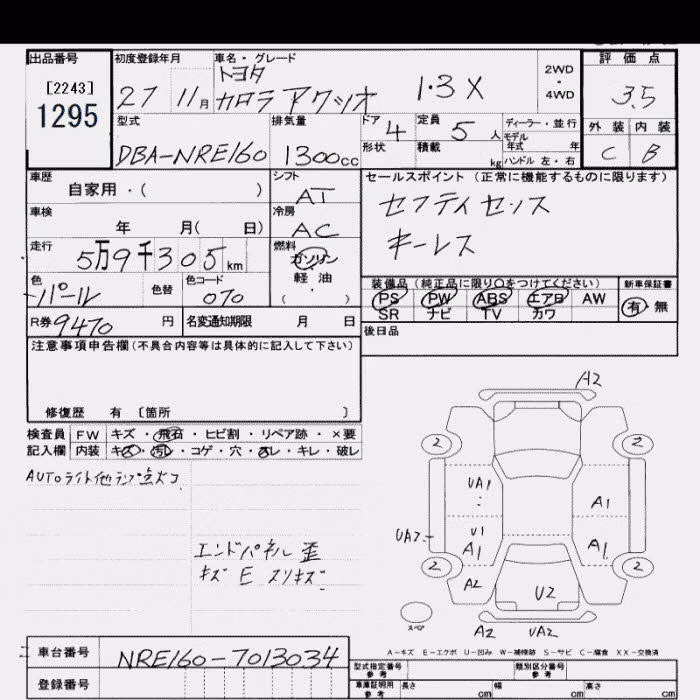 出品番号
[2243]
1295
初度登録年月
27 11月
車名・グレード
トヨタ
カロラ アクシオ 1.3X
2WD
・
4WD
評価点
3.5
外装 内装
C B
型式
DBA-NRE160
排気量
1300cc
ドア 4
形状
定員 5 人
積載 kg
ディーラー・並行
モデル
年式 年
ハンドル 左・右
車歴
自家用・( )
シフト
AT
車検
年 月( 日)
冷房
AC
走行
5万9千305km
燃料
ガソリン
・
軽油
( ・ )
色
パール
色替
色カラード
070
R券 9470 円
名変通知期限 月 日
セールスポイント (正常に機能するものに限ります)
セフティセンス
キーレス
装備品 (純正品に限り○をつけてください)
PS PW ABS エアB AW
SR ナビ TV カワ
新車保証書
有 無
後日品
注意事項申告欄 (不具合内容等は具体的に記入して下さい)
修復歴 有 〔箇所 〕
検査員 FW キズ・飛石・ヒビ割・リペア跡・×要
記入欄 内装 キズ・汚レ・コゲ・穴・スレ・キレ・破レ
AUTOライト他ランプ点灯コ
エンドパネル歪
キズ E スリキズ
A2
2 2
UA1
A1
UA2
U1
A1 A1
2 2
A2
U2
スペア
A2 UA2
A-キズ E-エクボ U-凹み W-補修跡 S-サビ C-腐食 XX-交換済
車台番号 NRE160-7013034
登録番号
型式指定番号
参考
類別区分番号
参考
車庫証明用
参考
長さ cm 幅 cm 高さ cm